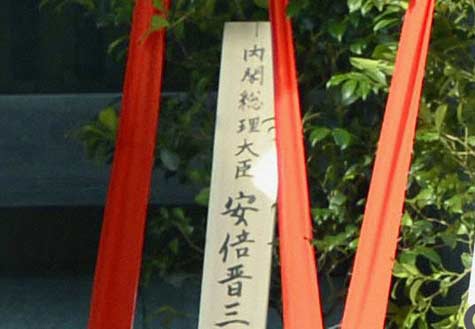 内閣総理大臣 安倍晋三